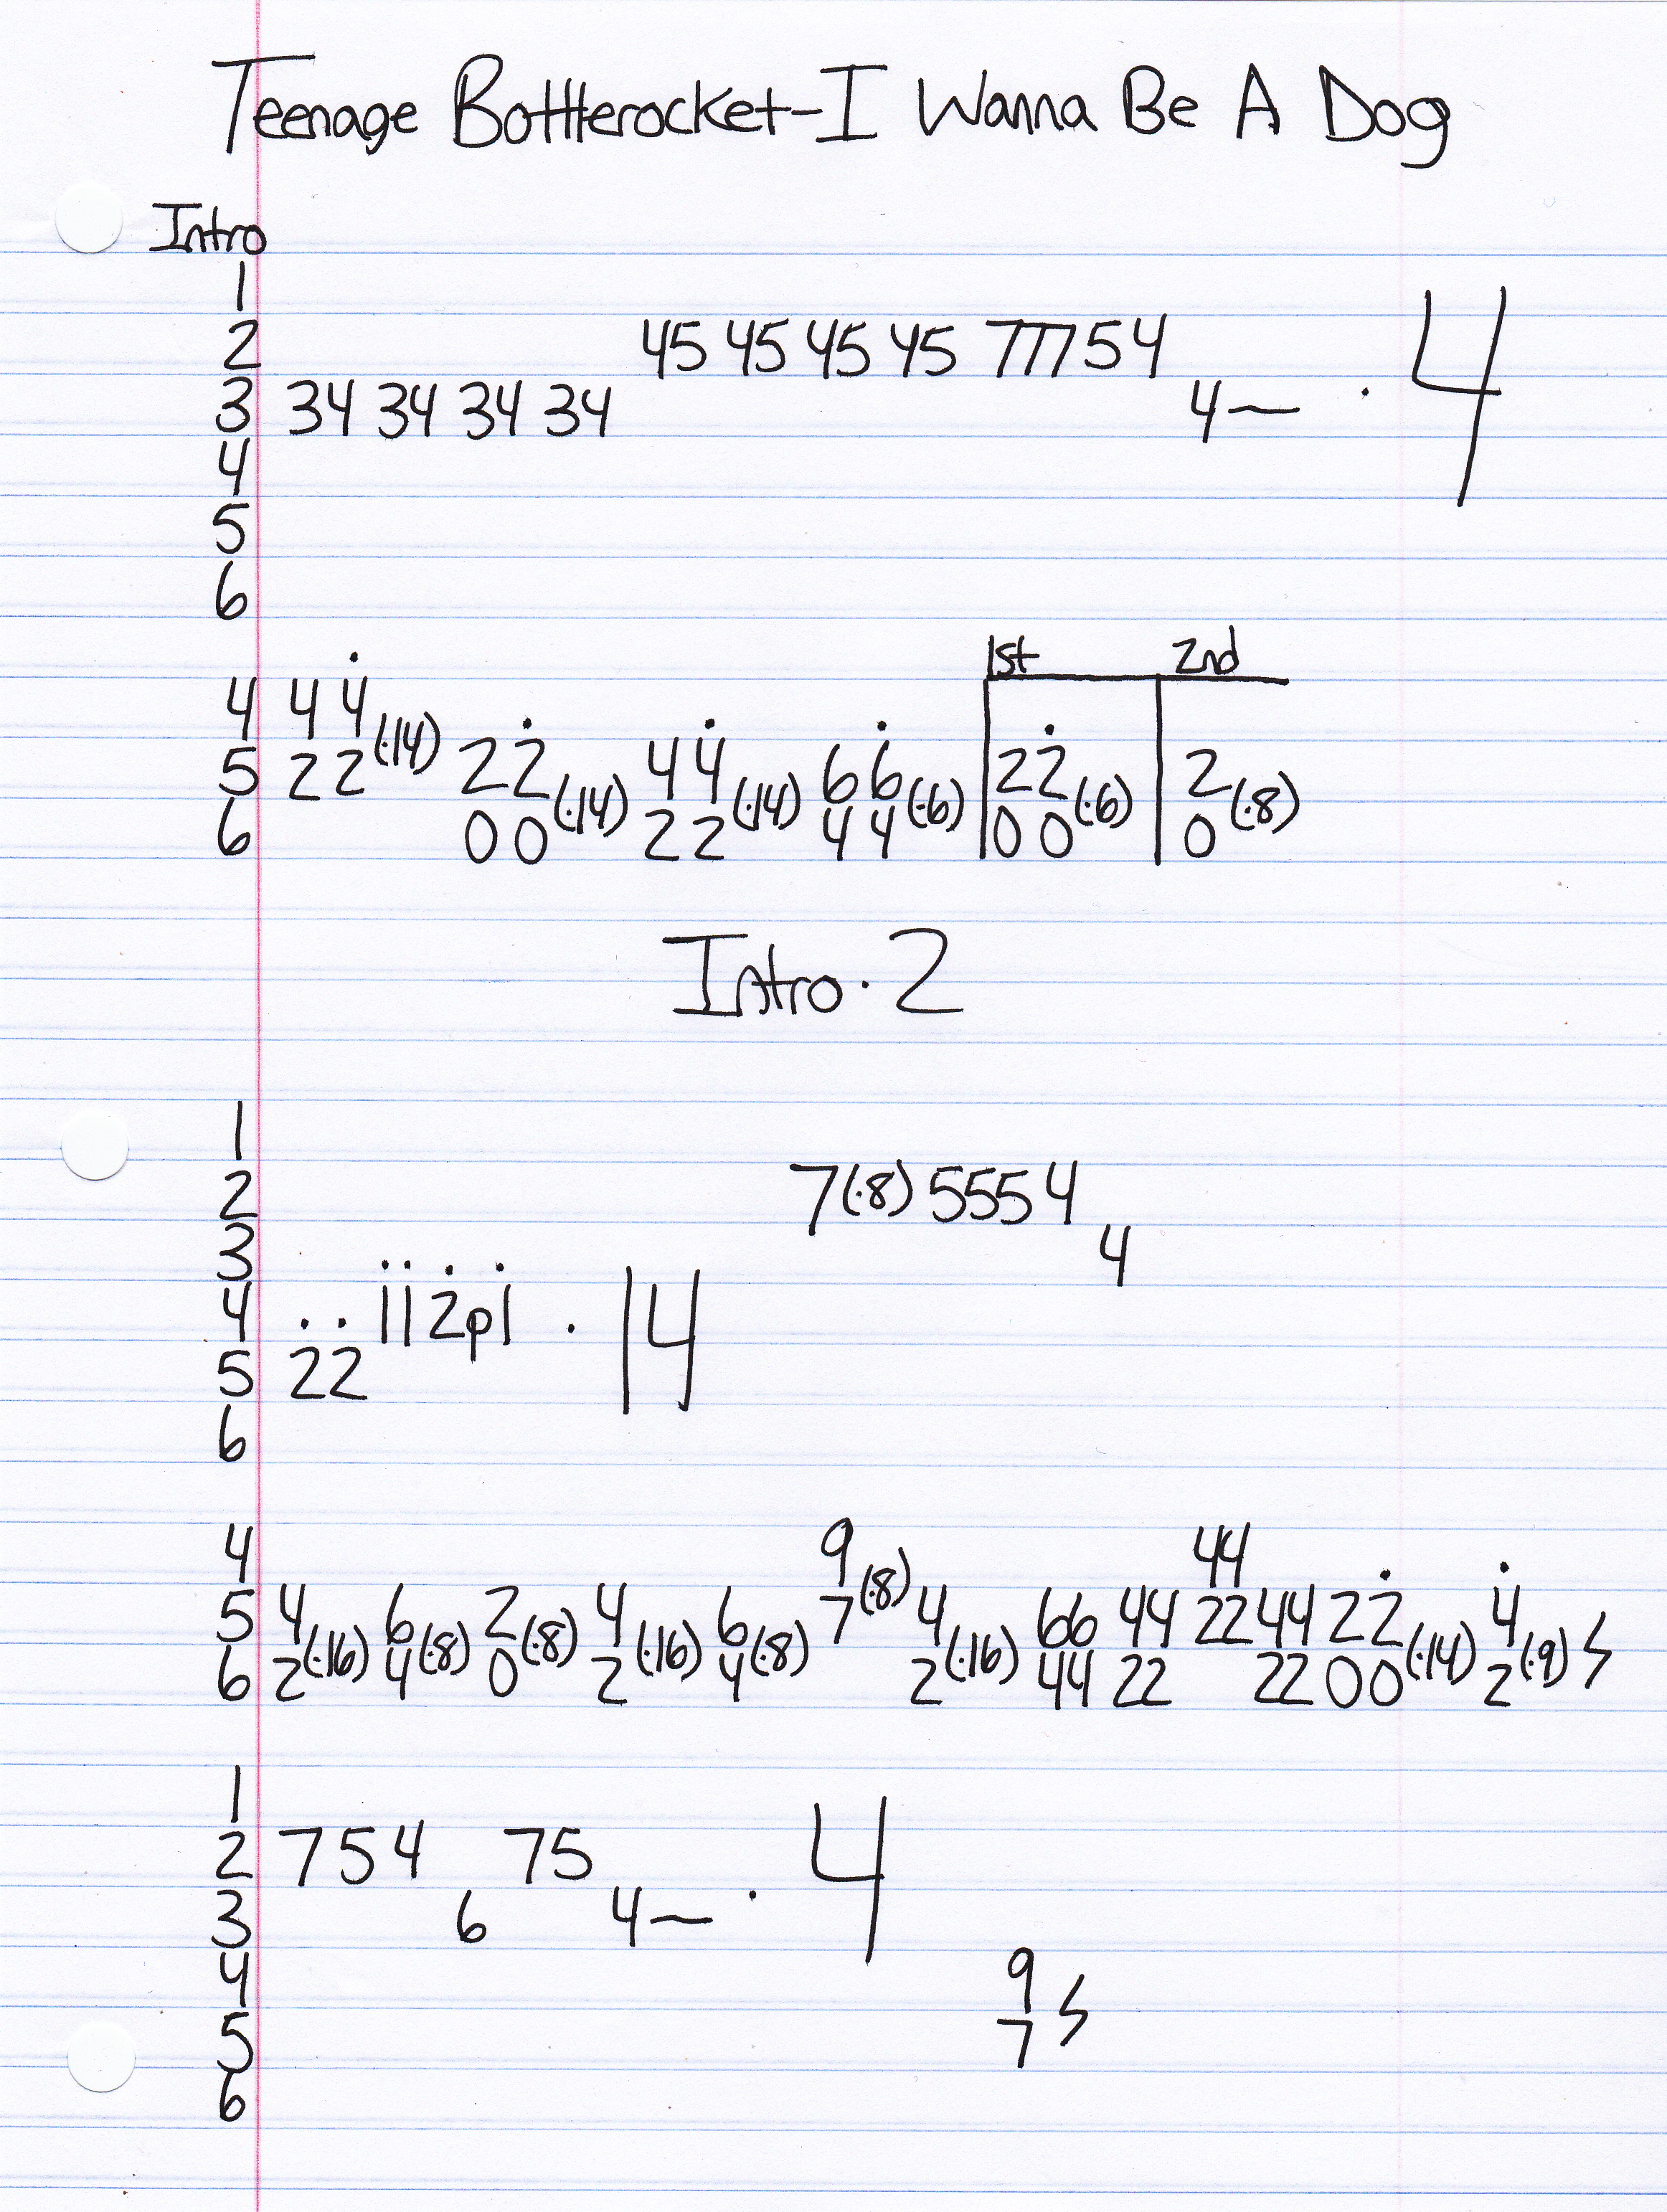 Teenage Bottlerocket-I Wanna Be A Dog
Intro
1
2 45 45 45 45 777 5 4
3 34 34 34 34 4— · 4
4
5
6
1st 2nd
4 4 4
5 2 2 (·14) 2 2 4 4 6 6 2 2 2
6 0 0 (·14) 2 2 (·14) 4 4 (·6) 0 0 (·6) 0 (·8)
Intro · 2
1
2 7(·8) 5554
3 4
4 · · 1 1 2p1 · 14
5 22
6
4 9 44
5 4 6 2 4 6 7(·8) 4 66 44 22 44 22 4
6 2(·16) 4(·8) 0(·8) 2(·16) 4(·8) 2(·16) 44 22 22 00(·14) 2(·9)
1
2 7 5 4 75
3 6 4— · 4
4 9
5 7
6